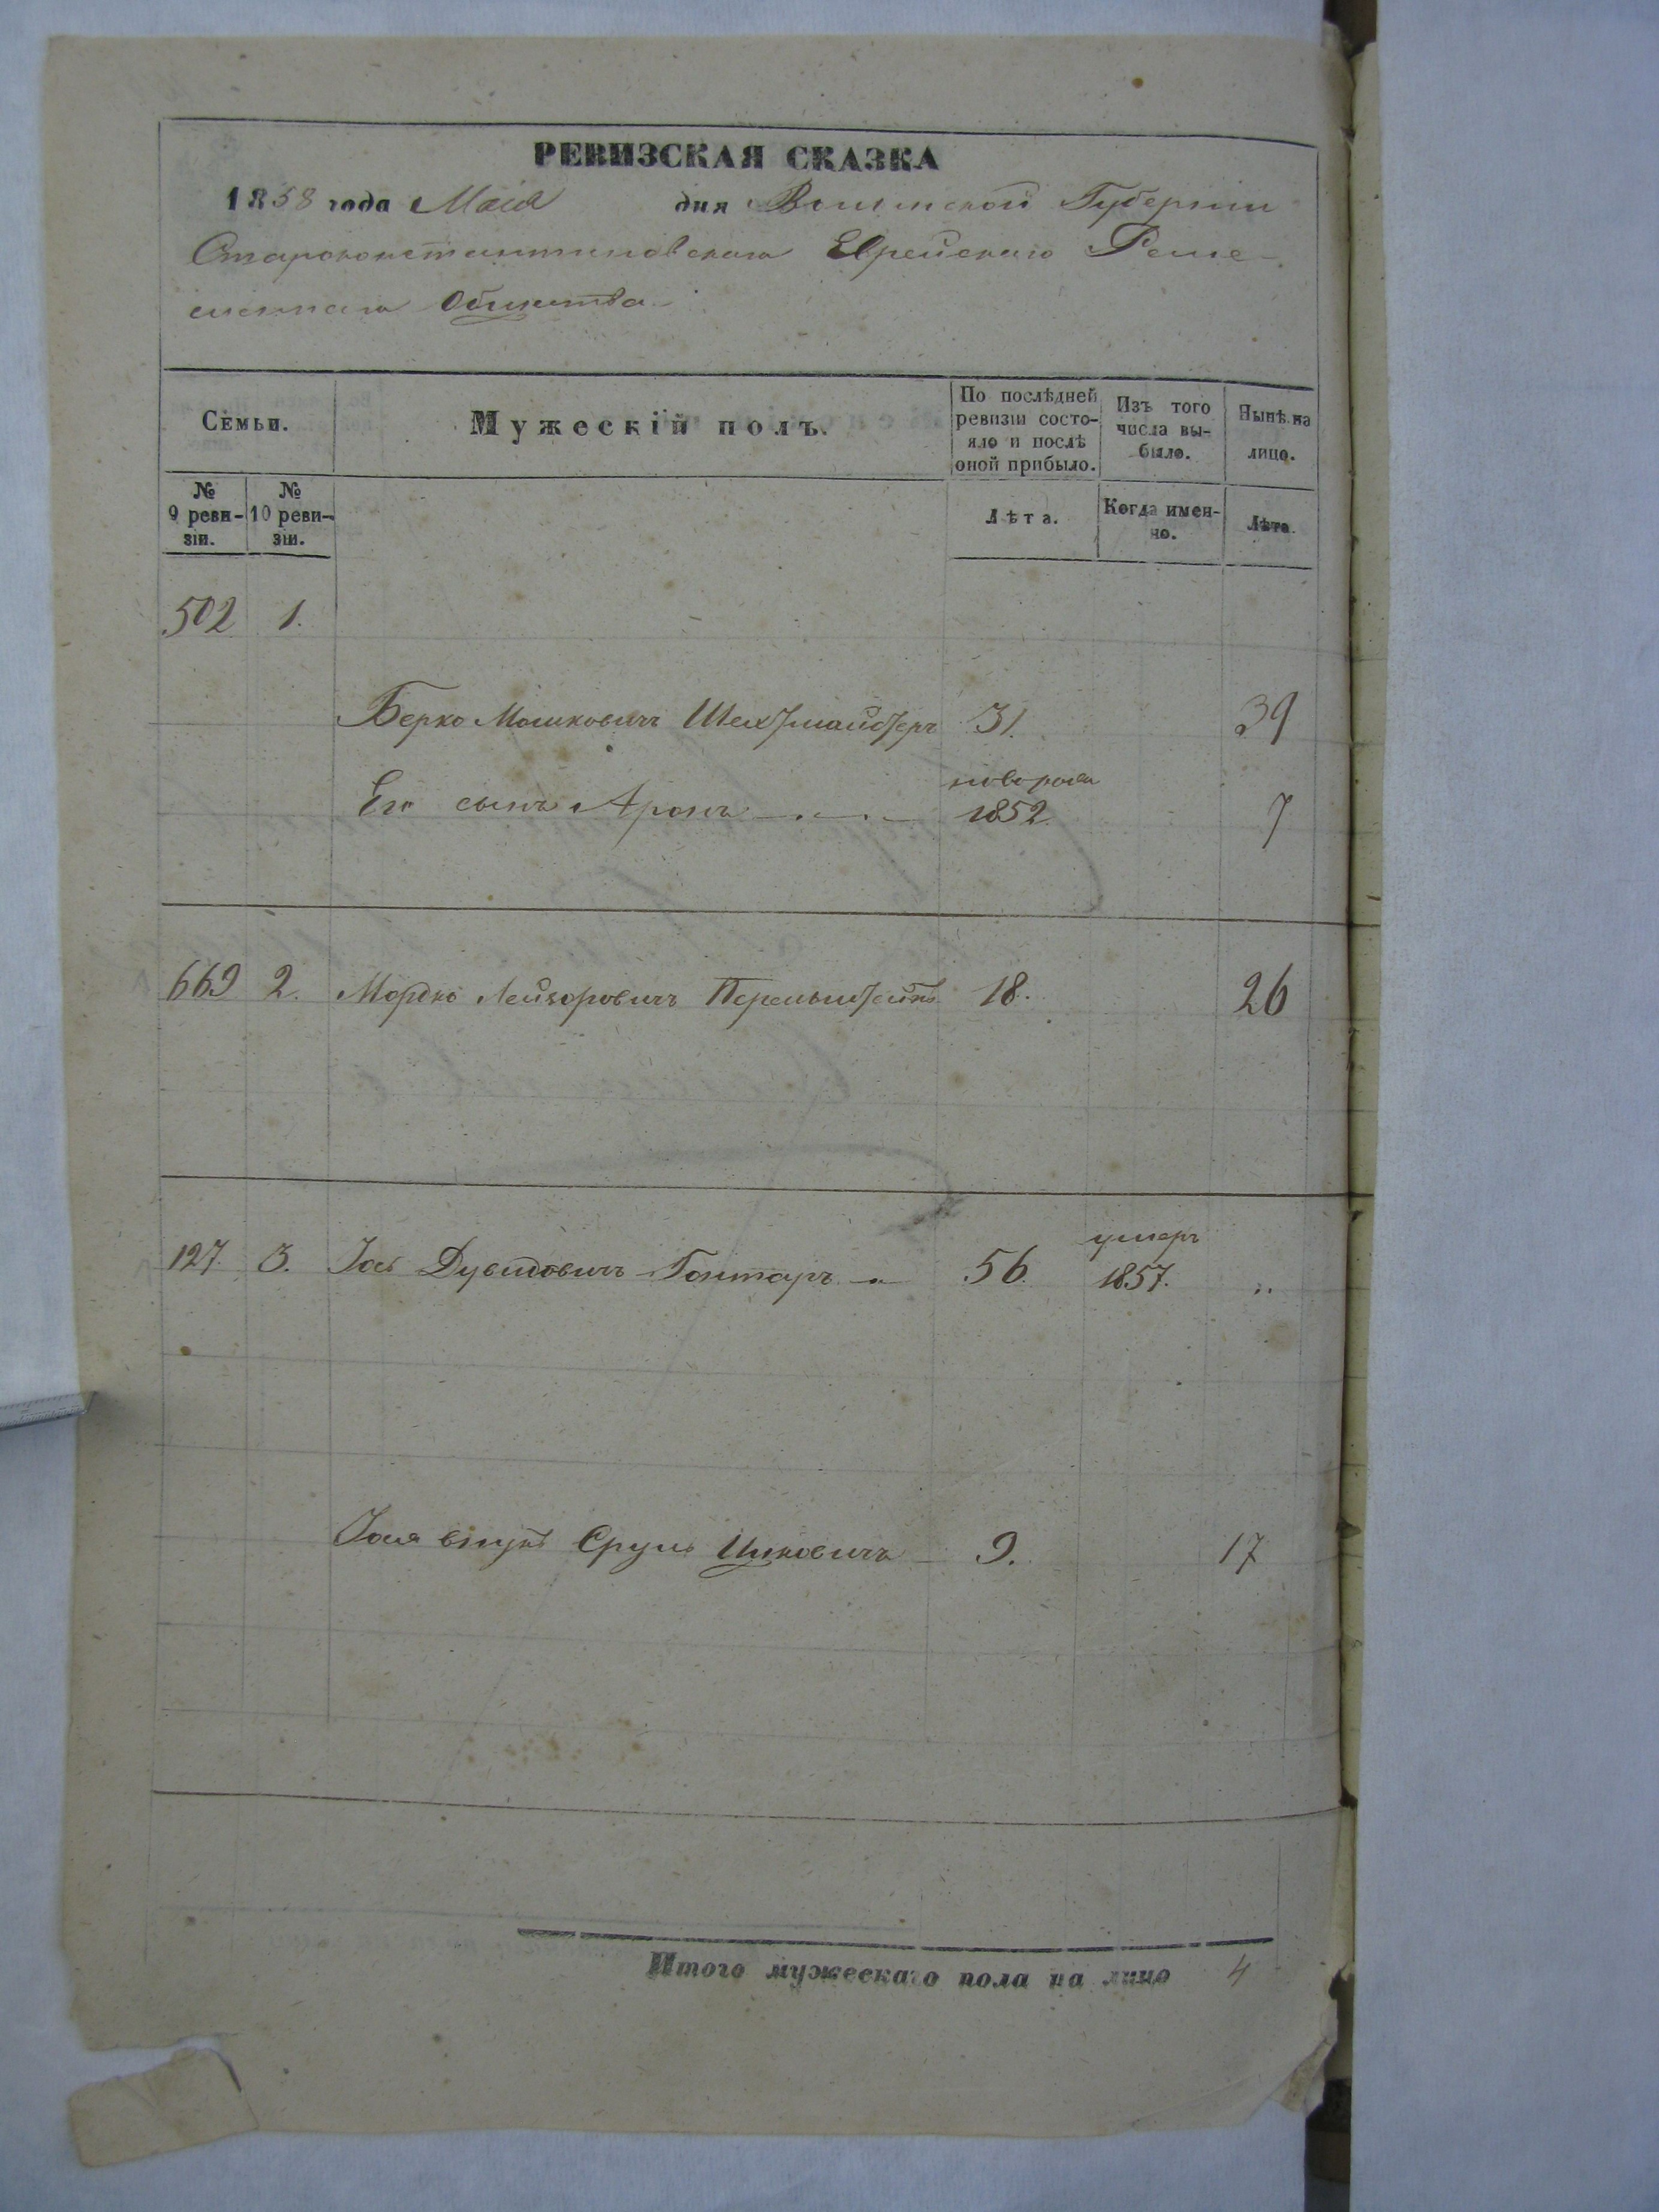 РЕВИЗСКАЯ СКАЗКА
1858 года Маія дня Волынской Губерніи
Староконстантиновскаго Еврейскаго Реме-
сленнаго Общества
Семьи.
Мужескій полъ.
По послѣдней ревизіи состо-
яло и послѣ оной прибыло.
Изъ того числа вы-
было.
Нынѣ на лицо.
№ 9 реви-
зіи.
№ 10 реви-
зіи.
Лѣта.
Когда имен-
но.
Лѣта.
502 1.
Берко Мошковичъ Шехтмайстеръ 31. 39
новорож
Его сынъ Аронъ 1852. 7
669 2. Мордко Лейзоровичъ 18. 26
умеръ
127. 3. Іось Дувидовичъ Гонтаръ 56. 1857. "
Іося внукъ Сруль Ицковичъ 9. 17
Итого мужескаго пола на лицо 4